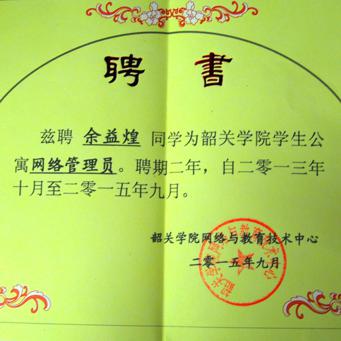 聘书
兹聘 余益煌 同学为韶关学院学生公
寓网络管理员。聘期二年，自二零一三年
十月至二零一五年九月。
韶关学院网络与教育技术中心
二零一五年九月